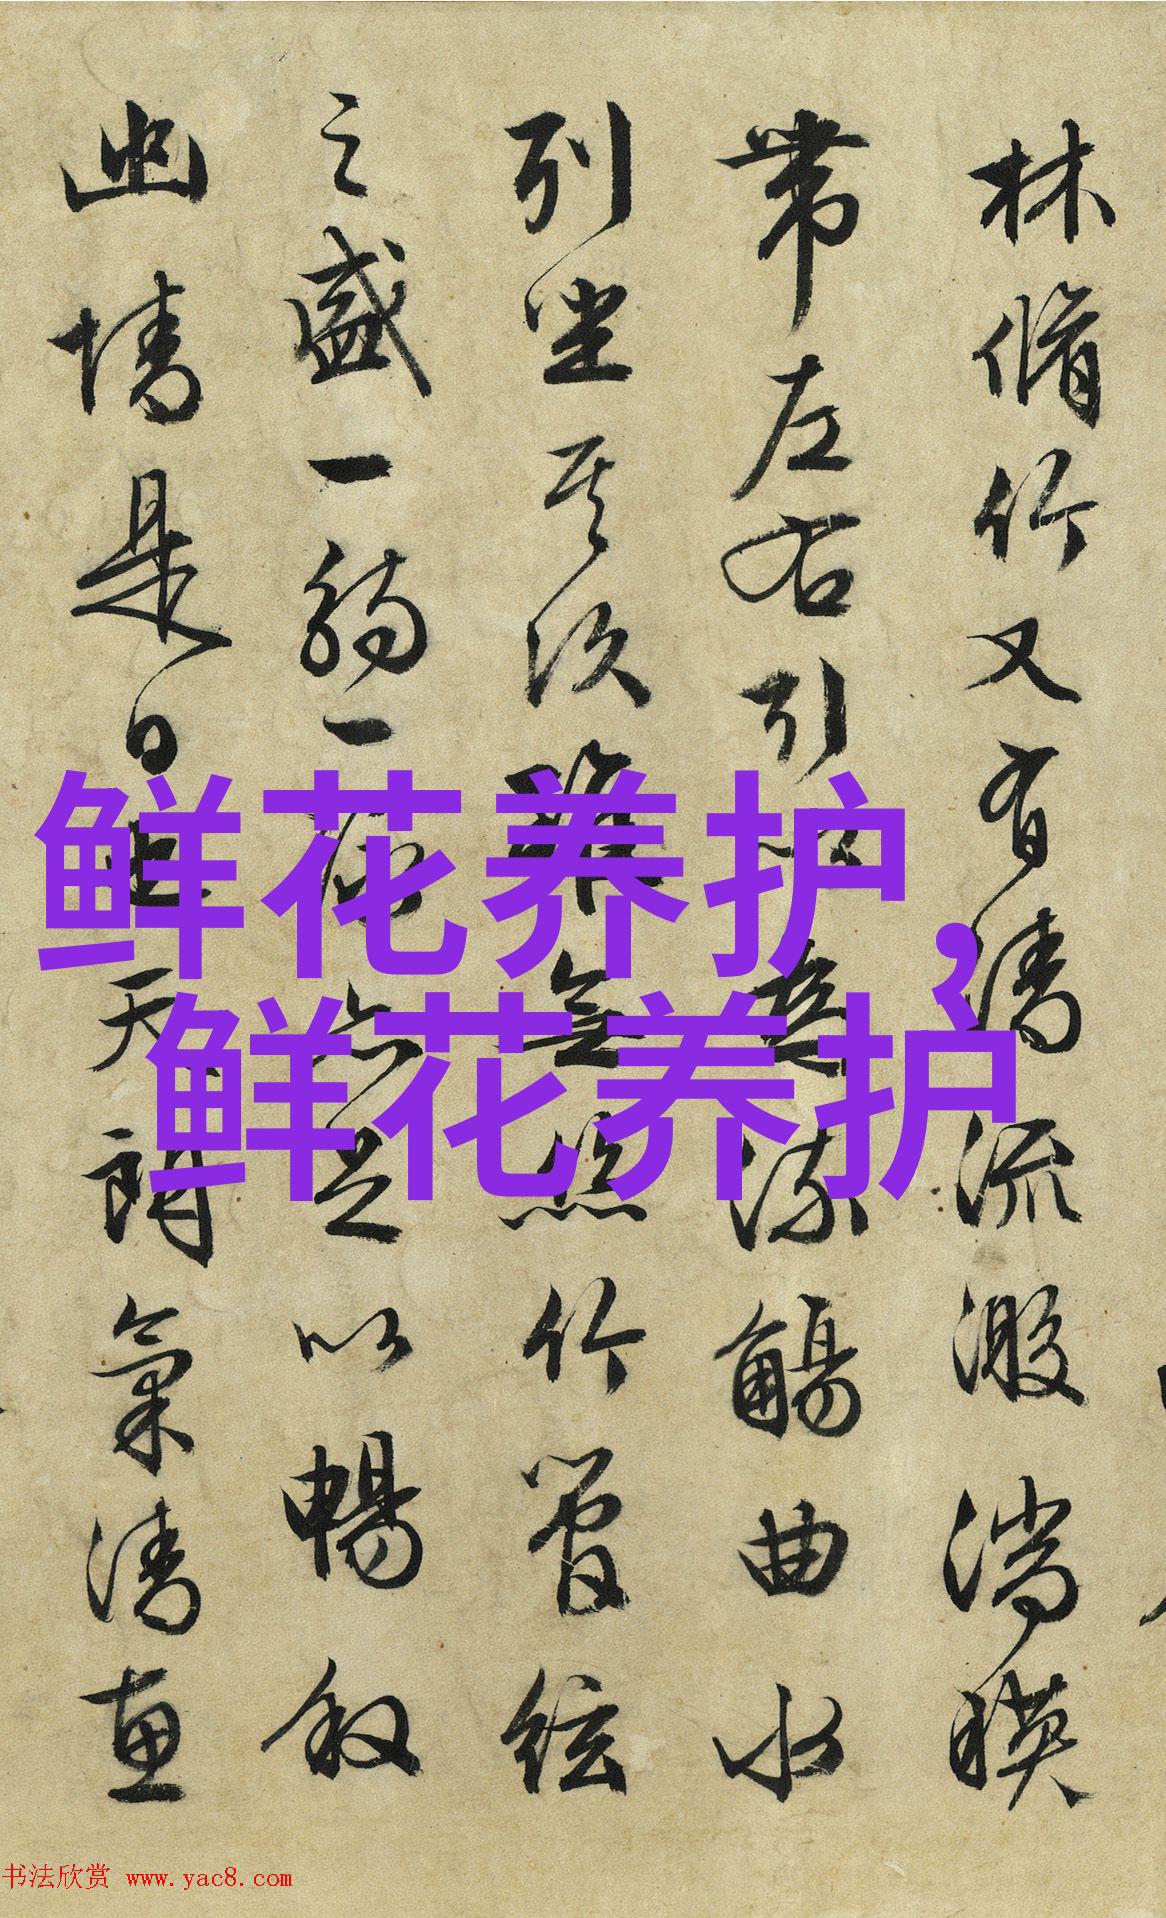 林脩竹又有清流激湍暎
帶左右引以為流觴曲水
列坐其次雖無絲竹管絃
之盛一觴一詠亦足以暢叙
幽情是日也天朗氣清惠
鲜花养护，
鲜花养护
书法欣赏 www.yac8.com